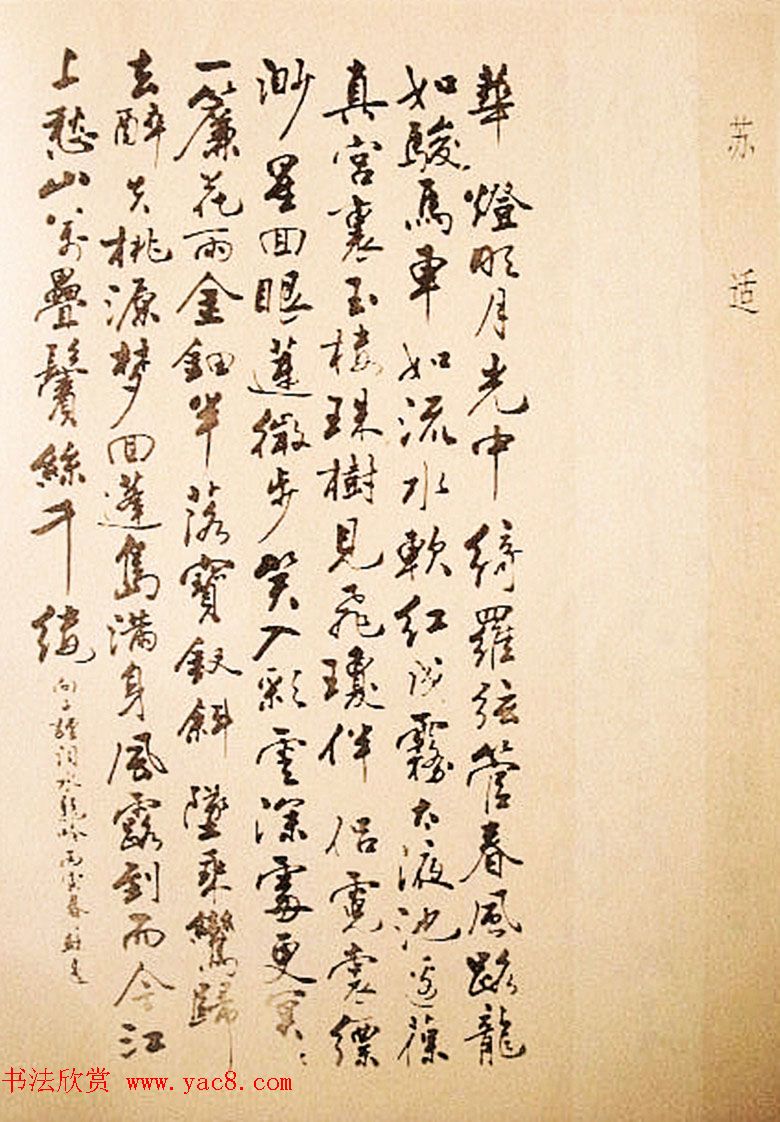 苏适
華燈明月光中綺羅弦管春風路龍
如駿馬車如流水軟紅成霧太液池邊葆
真宮裏玉樓珠樹見飛瓊伴侶霓裳縹
渺星回眼蓮微步笑入彩雲深處更冥〻
一簾花雨金鈿半落寶釵斜墜乘鸞歸
去醉失桃源梦回蓬島滿身風露到而今江
上愁山萬疊鬢絲千縷 向子諲詞水龍吟 春 蘇适
书法欣赏 www.yac8.com